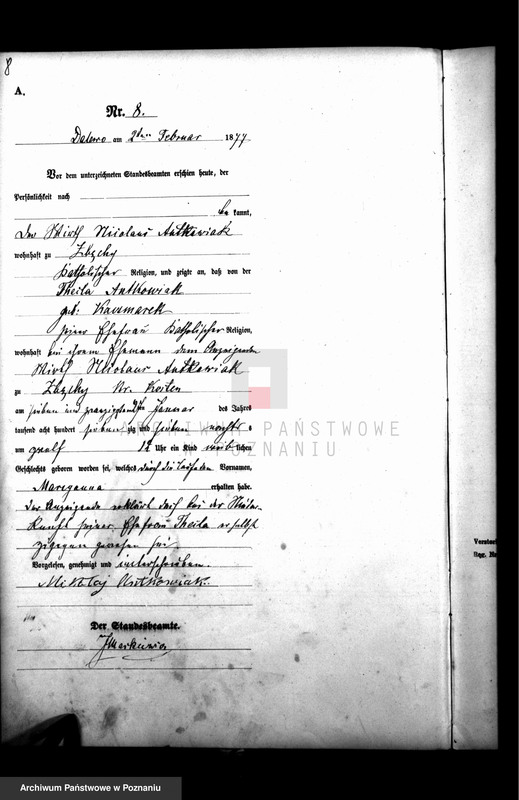 8
A.
Nr. 8.
Dalewo am 2ten Februar 1877
Vor dem unterzeichneten Standesbeamten erschien heute, der
Persönlichkeit nach
be kannt,
Der Wirth Nicolaus Antkowiak
wohnhaft zu Zbęchy
katholischer Religion, und zeigte an, daß von der
Thekla Antkowiak
geb: Kaczmarek
seiner Ehefrau katholischer Religion,
wohnhaft bei ihrem Ehemann dem Anzeigenden
Wirth Nicolaus Antkowiak
zu Zbęchy Kr. Kosten
am sieben und zwanzigsten Januar des Jahres
tausend acht hundert sieben zig und sieben
um zwölf 12 Uhr ein Kind weiblichen
Geschlechts geboren worden sei, welches durch die Taufe den Vornamen,
Maryanna erhalten habe.
Der Anzeigende erklärt daß bei der Nieder-
kunft seiner Ehefrau Thekla er selbst
zugegen gewesen sei
Vorgelesen, genehmigt und unterschrieben.
Mikołaj Antkowiak
Der Standesbeamte.
ARCHIWUM PAŃSTWOWE
W POZNANIU
Verstor
Reg. Nr
Archiwum Państwowe w Poznaniu